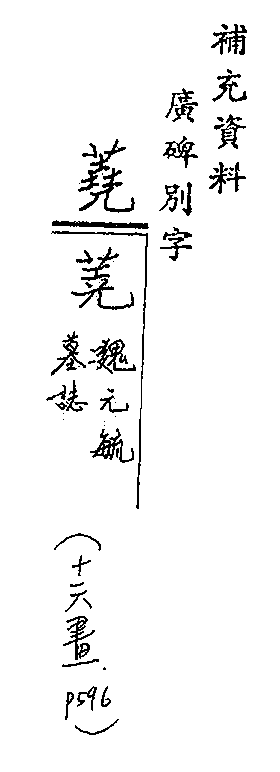 補充資料
廣碑別字
蕘
魏元毓
墓誌
(十六畫.P596)